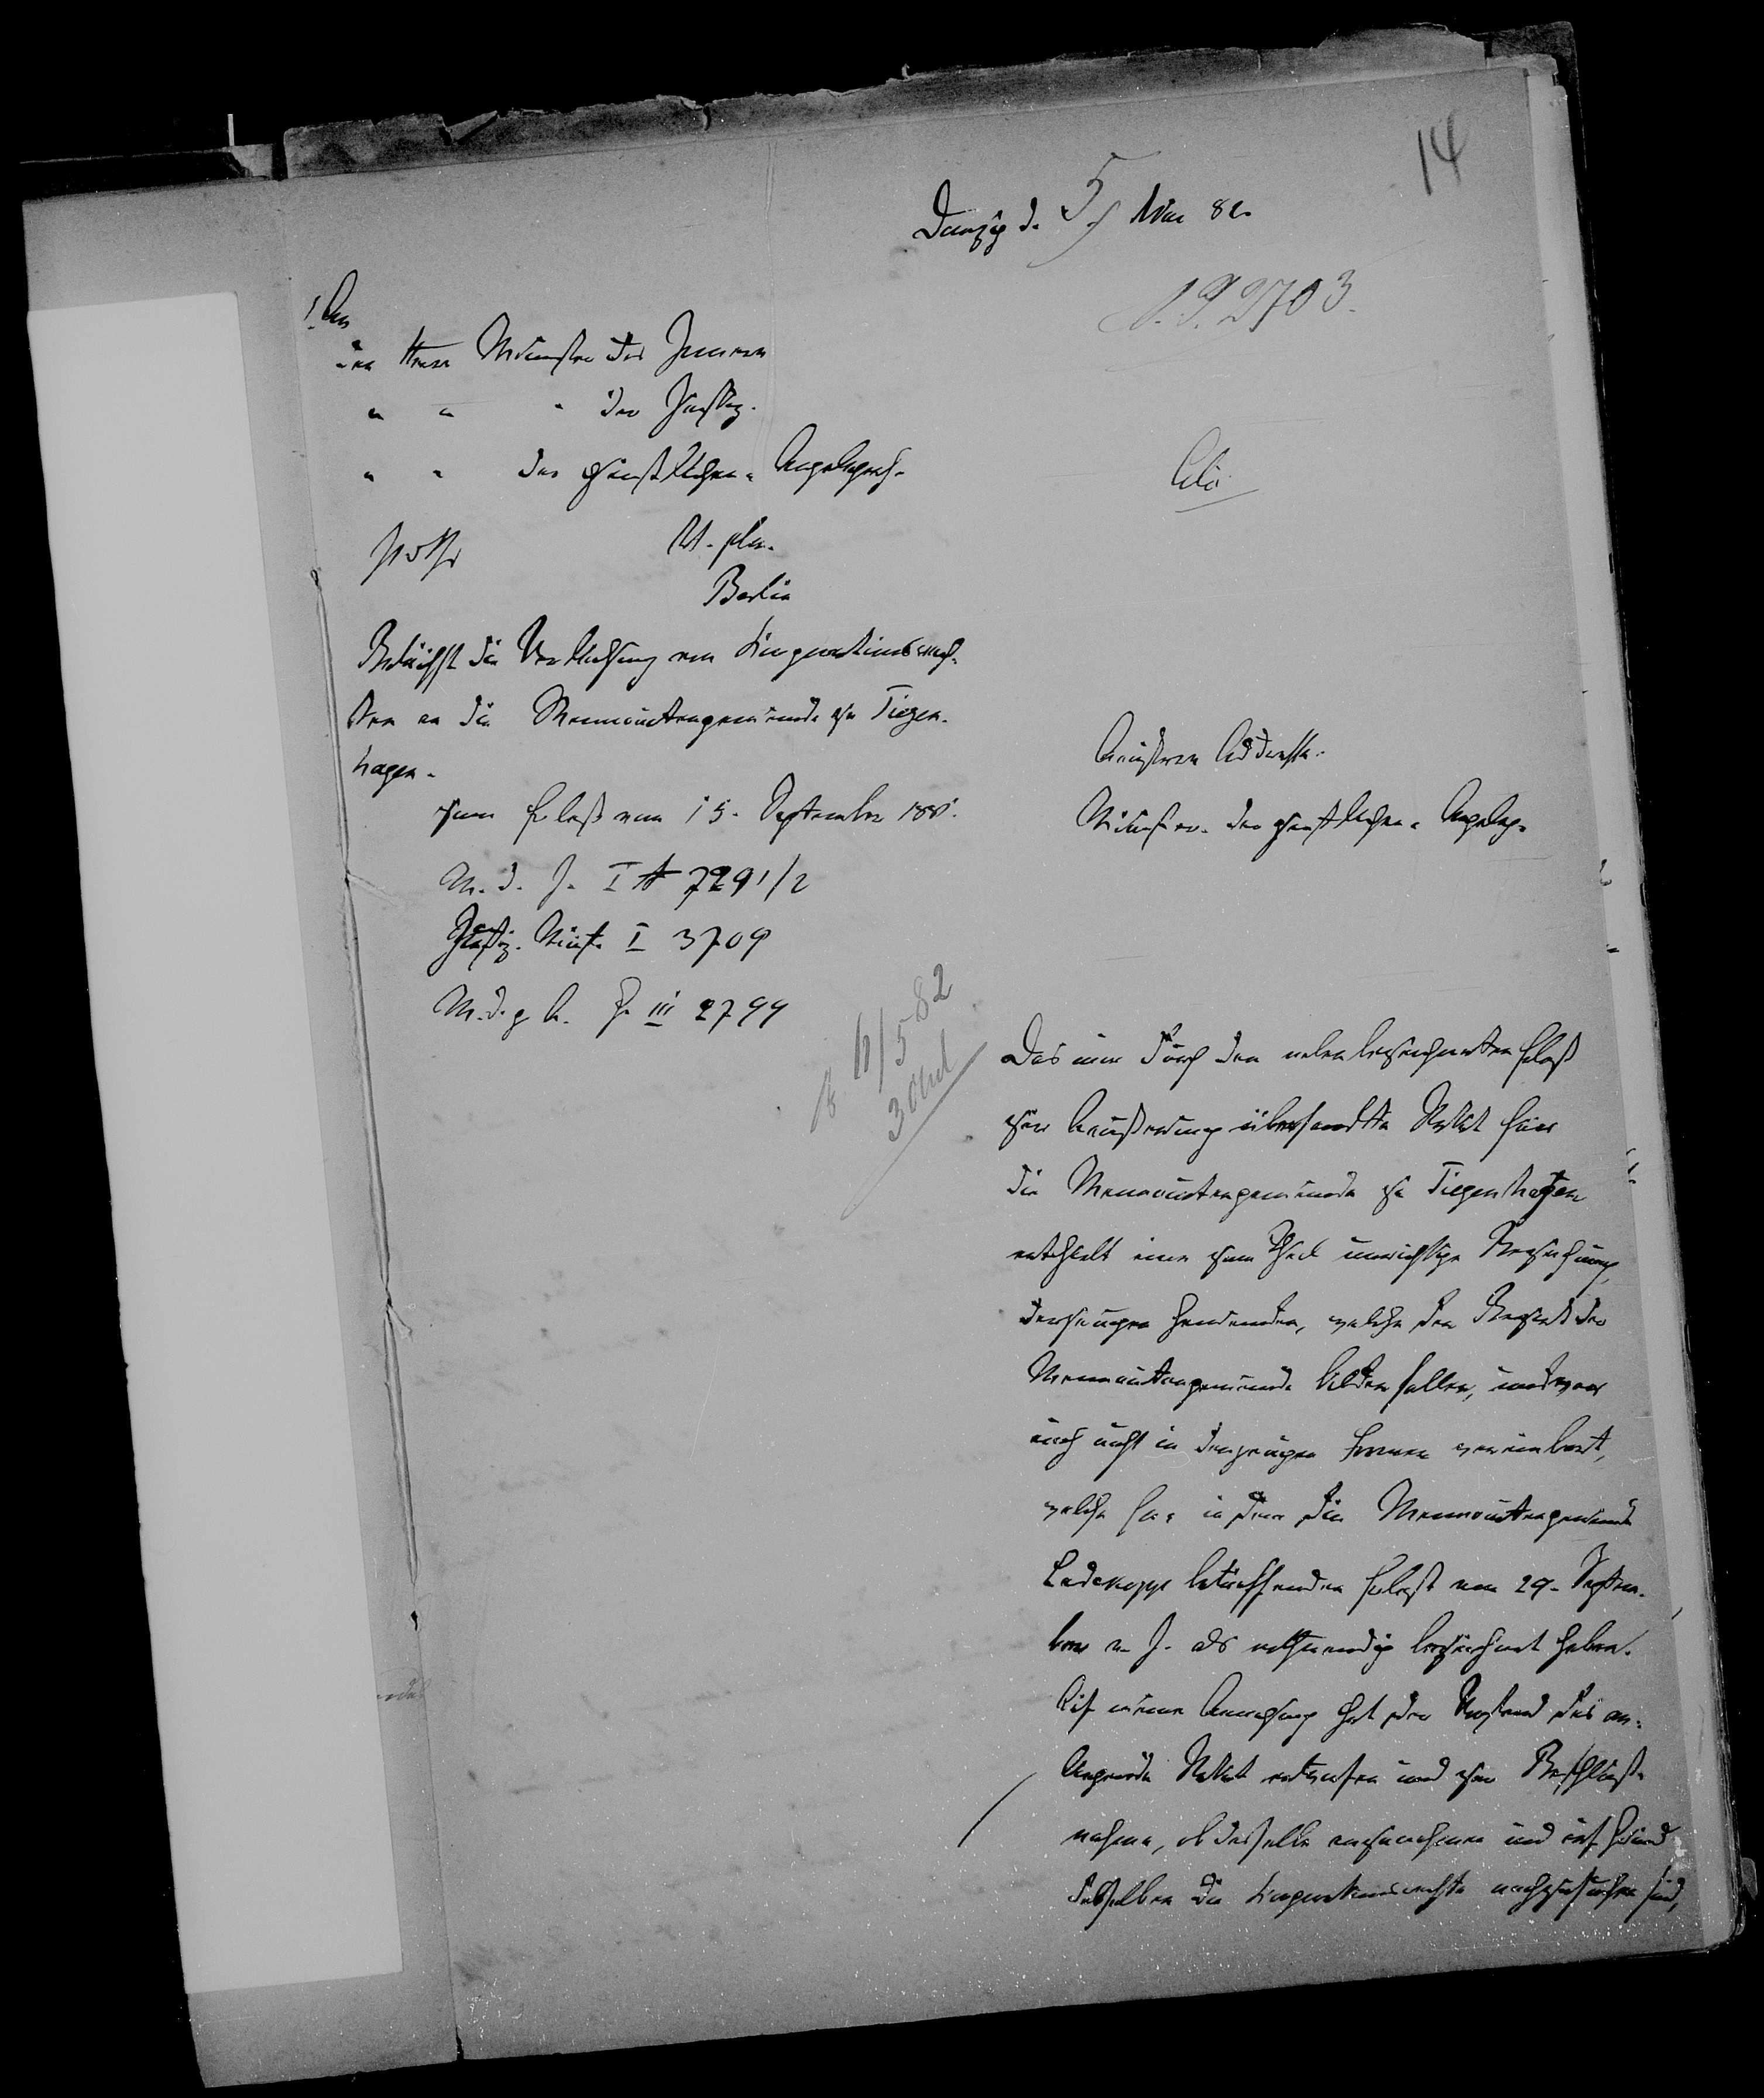 14
Danzig d. 5/ Mai 82.
J. 2703.
1. An
den Herrn Minister des Innern
" " " der Justiz.
" " der geistlichen p Angelegenh.
Berlin
Betrifft die Verleihung von Korporationsrech-
ten an die Mennonitengemeinde zu Tiegen-
hagen.
zum Erlaß vom 15. September 1881.
M. d. J. I A 7291/2
Justiz. Minist. I 3709
M. d. g. A. G. III 2799
Cito
Aeußere Adresse.
Minister der geistlichen p Angeleg.
6/5 82
Das mir durch den nebenbezeichneten Erlaß
zur Aeußerung übersandte Statut für
die Mennonitengemeinde zu Tiegenhagen
enthielt eine zum Theil unrichtige Bezeichnung
derjenigen Gemeinden, welche den Bezirk der
Mennonitengemeinde bilden sollen, und war
auch nicht in denjenigen Formen vereinbart,
welche Ew. in dem die Mennonitengemeinde
Ladekopp betreffenden Erlaß vom 29. Septem-
ber v. J. als nothwendig bezeichnet haben.
Auf meine Anweisung hat der Vorstand das an-
liegende Statut entworfen und zur Beschluß-
nahme, ob dasselbe anzunehmen und auf Grund
desselben die Korporationsrechte nachzusuchen sind,